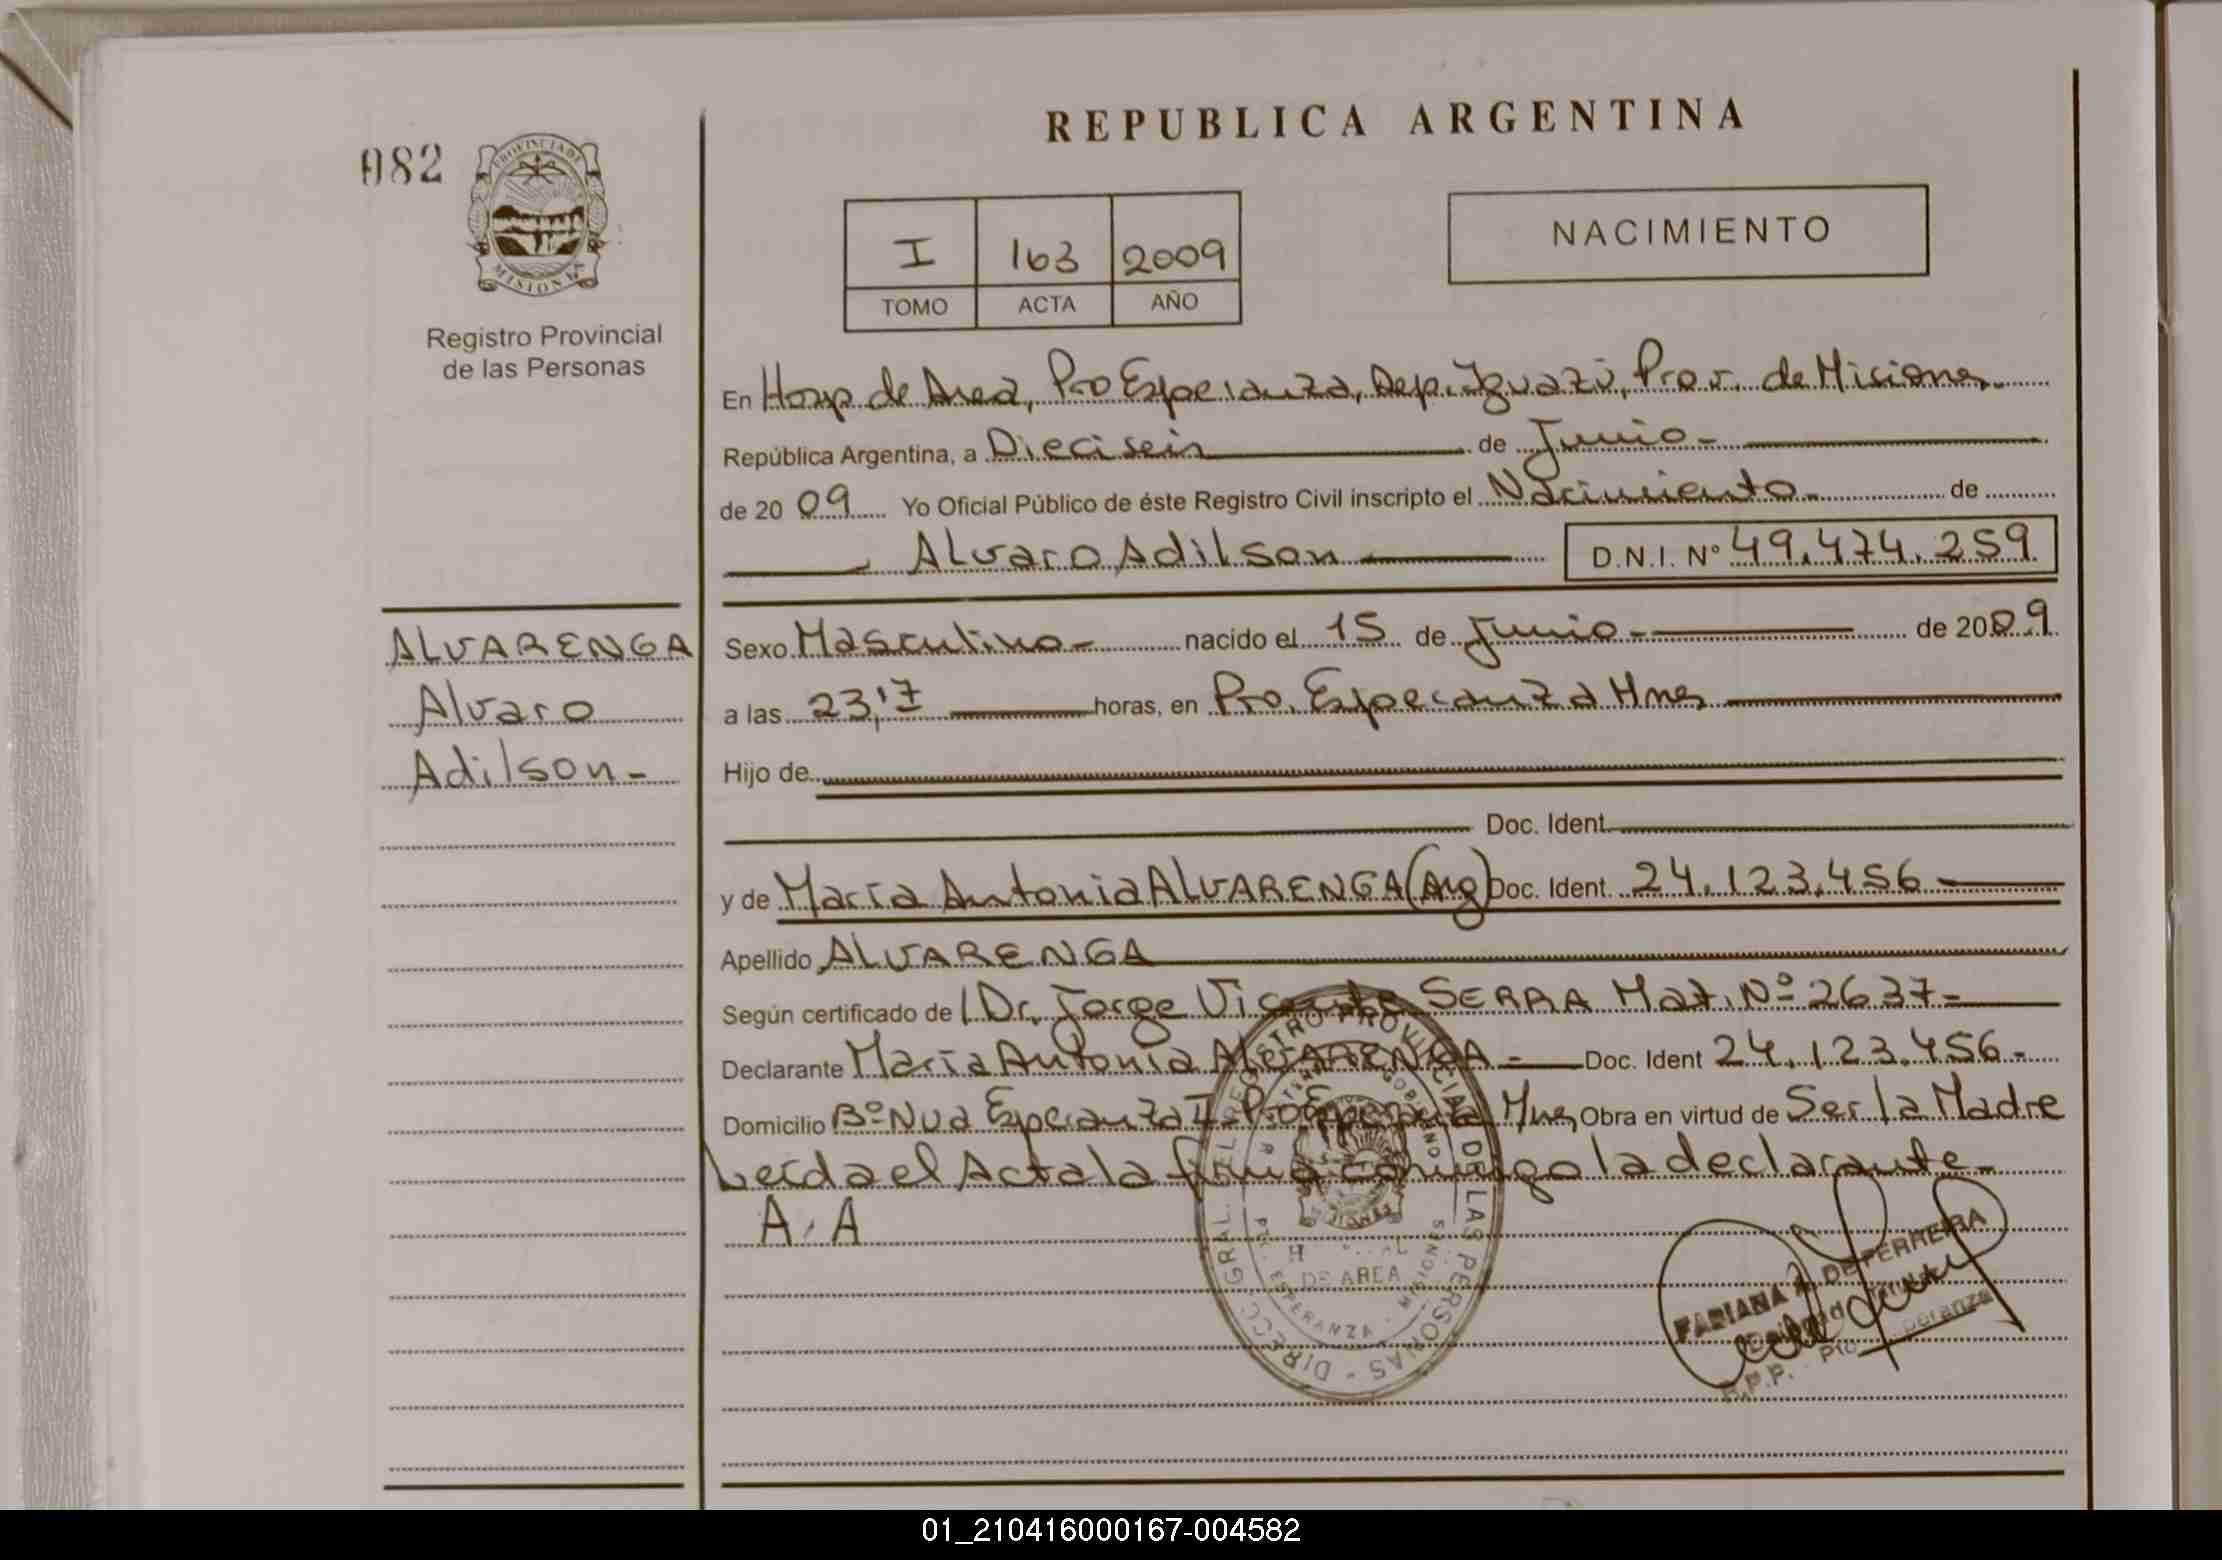 REPUBLICA ARGENTINA
082
PROVINCIA DE
MISIONES
Registro Provincial
de las Personas
I 163 2009
TOMO ACTA AÑO
NACIMIENTO
En Hosp de Area, Pto Esperanza, Dep. Iguazú, Prov. de Misiones
República Argentina, a Dieciseis de Junio -
de 20 09 Yo Oficial Público de éste Registro Civil inscripto el Nacimiento - de
Alvaro Adilson D.N.I. Nº 49.474.259
ALVARENGA
Alvaro
Adilson -
Sexo Masculino - nacido el 15 de Junio - de 2009
a las 23,17 horas, en Pto. Esperanza Mnes
Hijo de
Doc. Ident.
y de María Antonia ALVARENGA (Arg) Doc. Ident. 24.123.456
Apellido ALVARENGA
Según certificado de Dr. Jorge Vicente SERRA Mat. Nº 2637 -
Declarante María Antonia ALVARENGA - Doc. Ident 24.123.456 -
Domicilio Bº Nva Esperanza II - Pto Esperanza Mnes Obra en virtud de Ser la Madre
Leída el Acta la firma conmigo la declarante -
A. A
DIRECC. GRAL. DEL REGISTRO PROVINCIAL DE LAS PERSONAS
DE AREA
ESPERANZA - MISIONES
DE FERREIRA
R.P.P. Pto. Esperanza
01_210416000167-004582